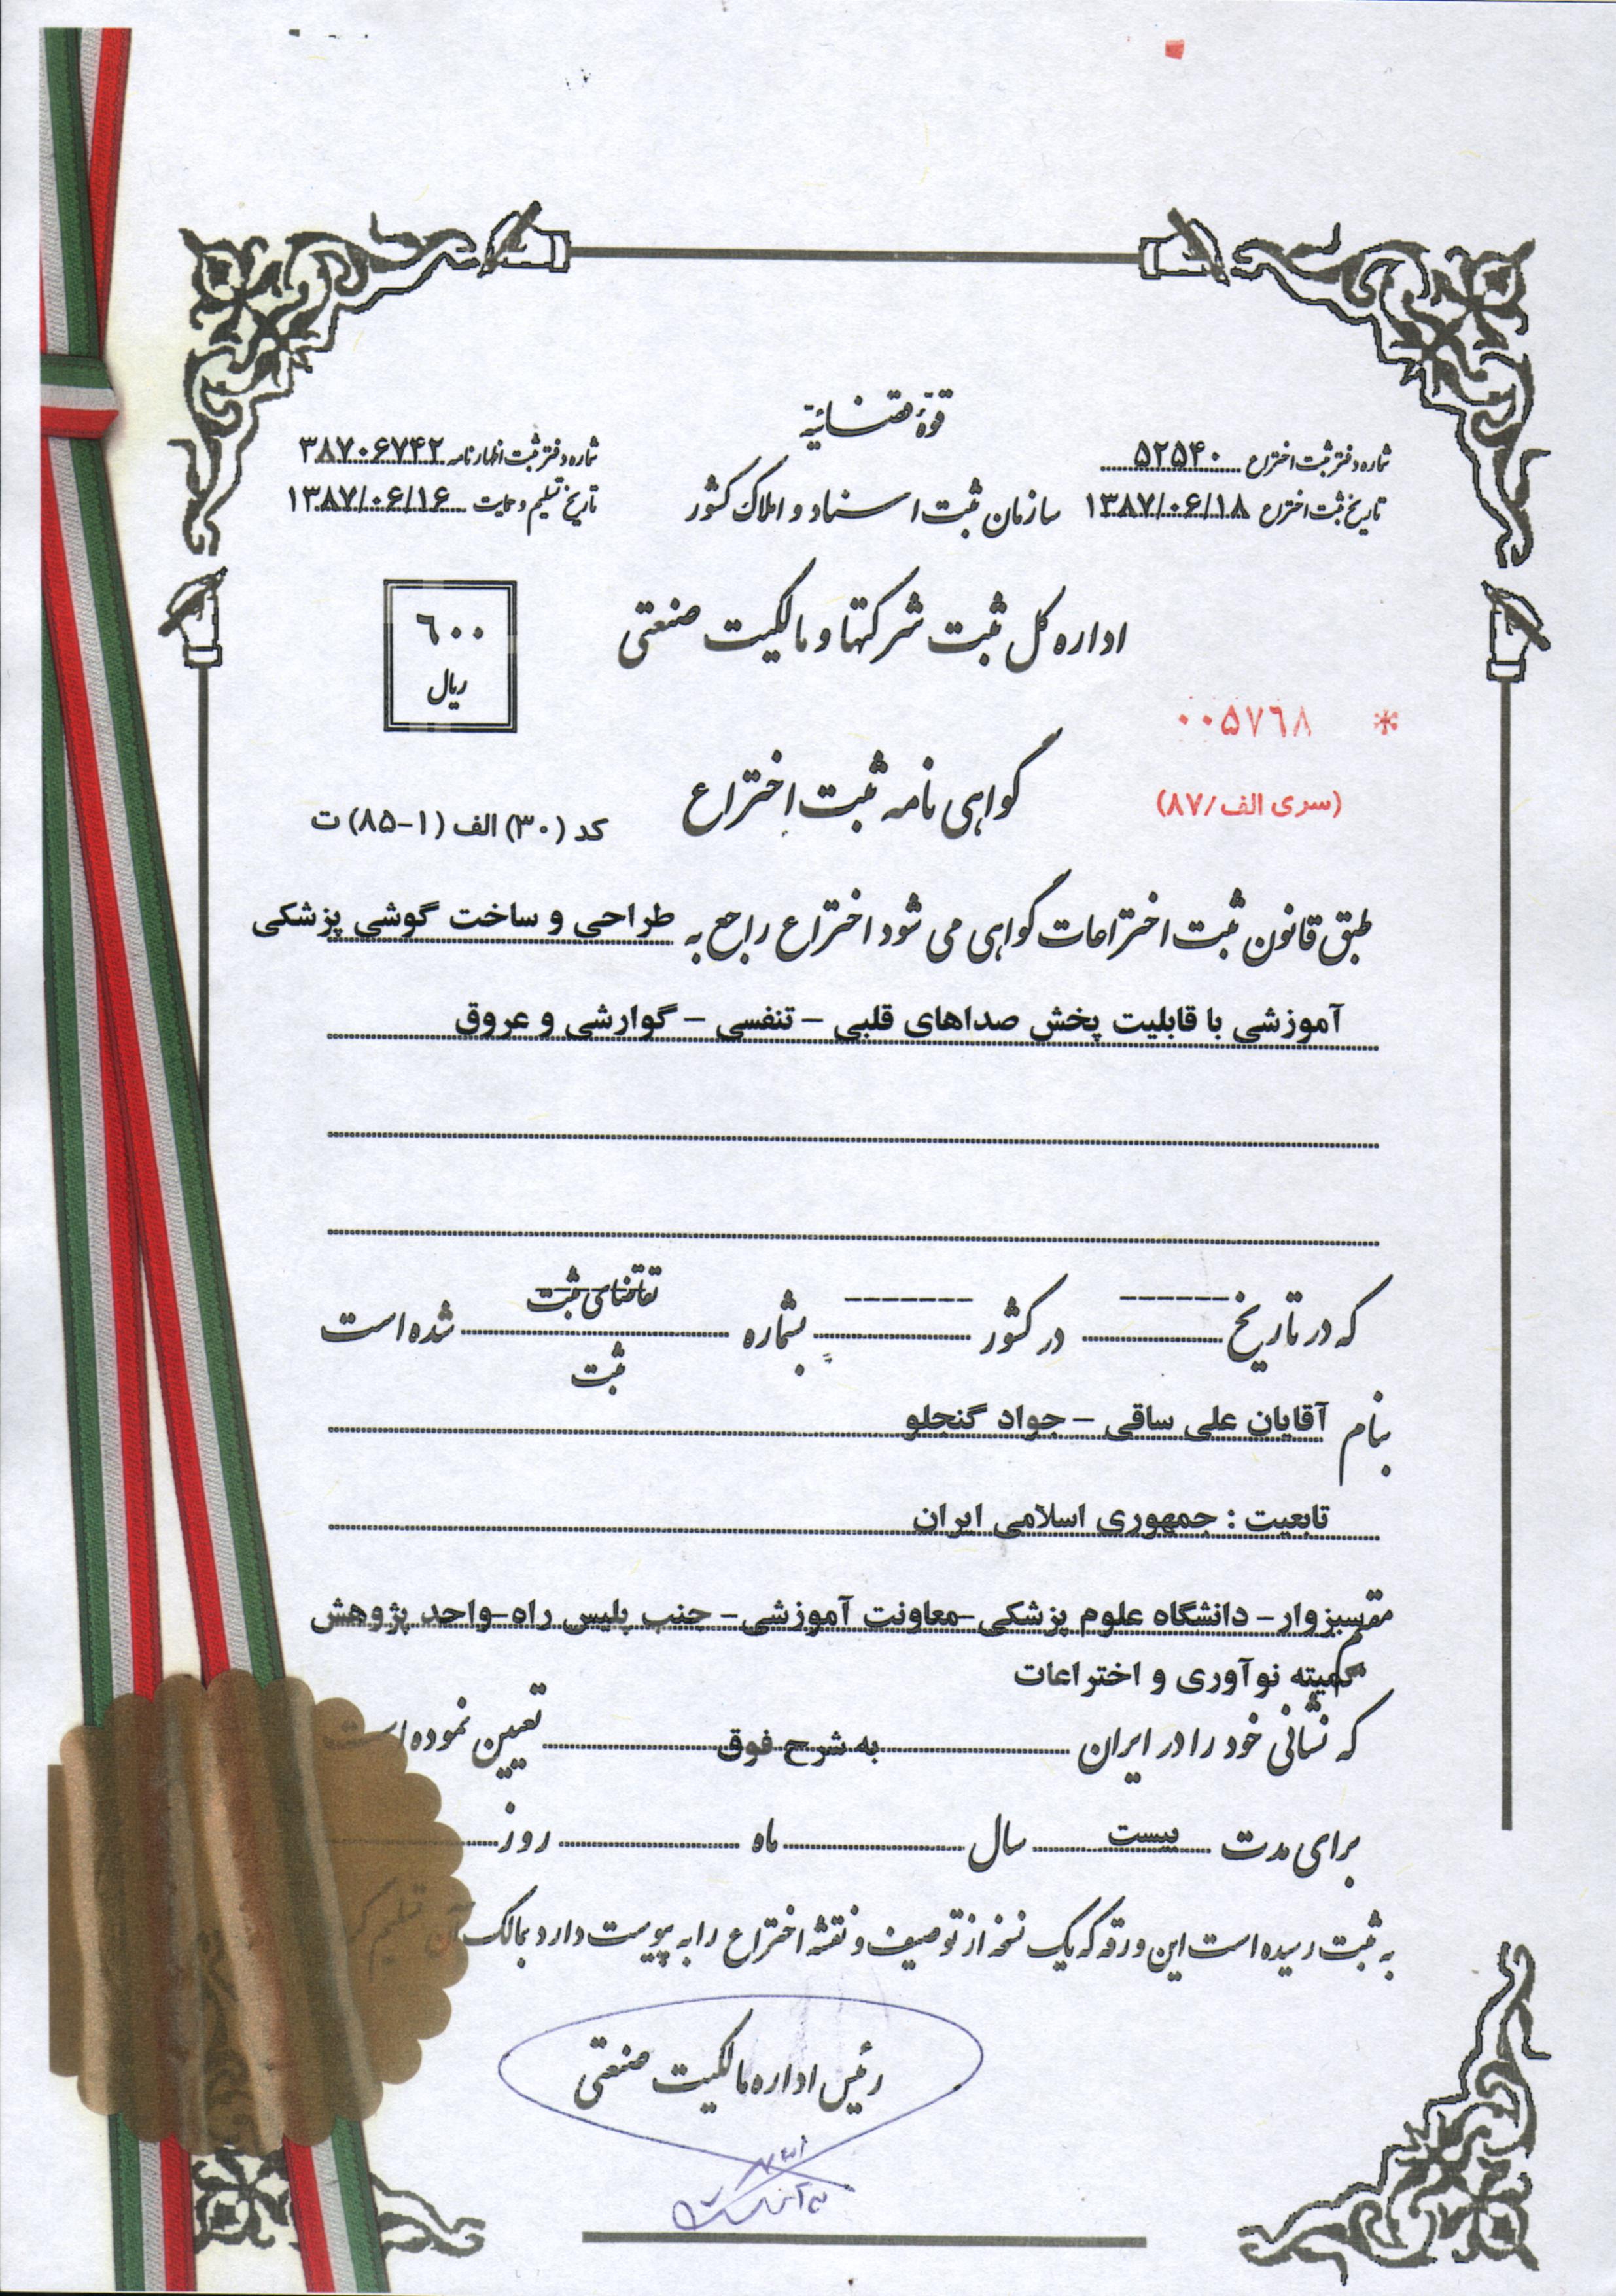 قوهٔ قضائیه
شماره دفتر ثبت اختراع ۵۲۵۴۰
شماره دفتر ثبت اظهارنامه ۳۸۷۰۶۷۴۲
سازمان ثبت اسناد و املاک کشور
تاریخ ثبت اختراع ۱۳۸۷/۰۶/۱۸
تاریخ تسلیم و حمایت ۱۳۸۷/۰۶/۱۶
اداره کل ثبت شرکتها و مالکیت صنعتی
۶۰۰
ریال
* ۰۰۵۷۶۸
(سری الف/۸۷)
گواهی نامه ثبت اختراع
کد (۳۰) الف (۱-۸۵) ت
طبق قانون ثبت اختراعات گواهی می شود اختراع راجع به طراحی و ساخت گوشی پزشکی
آموزشی با قابلیت پخش صداهای قلبی – تنفسی – گوارشی و عروق
تقاضای ثبت
که در تاریخ ------ در کشور ------- بشماره شده است
ثبت
بنام آقایان علی ساقی – جواد گنجلو
تابعیت : جمهوری اسلامی ایران
سبزوار- دانشگاه علوم پزشکی-معاونت آموزشی- جنب پلیس راه-واحد پژوهش
کمیته نوآوری و اختراعات
که نشانی خود را در ایران به شرح فوق تعیین نموده است
برای مدت بیست سال ماه روز
به ثبت رسیده است این ورقه که یک نسخه از توصیف و نقشه اختراع را به پیوست دارد بمالک آن تسلیم
رئیس اداره مالکیت صنعتی